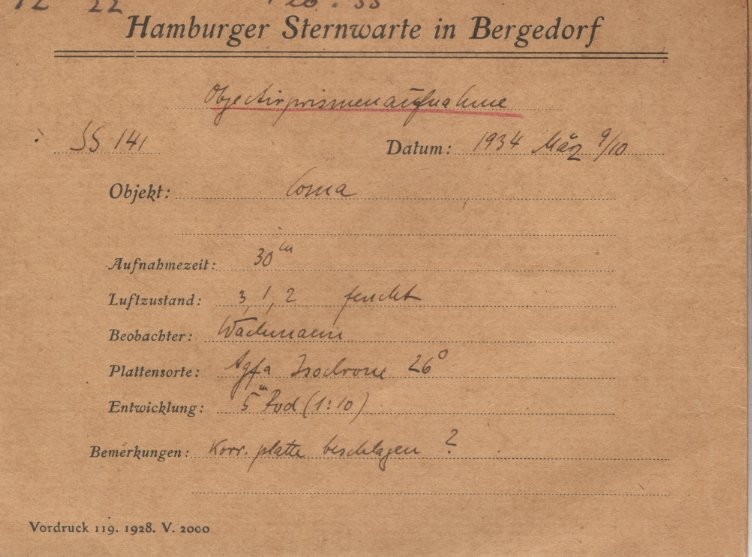 12 22 Feb. 33
Hamburger Sternwarte in Bergedorf
Objectivprismenaufnahme
SS 141 Datum: 1934 März 9/10
Objekt: Coma
Aufnahmezeit: 30 m
Luftzustand: 3, 1, 2 feucht
Beobachter: Wachmann
Plattensorte: Agfa Isochrom 26°
Entwicklung: 5 m Rod (1:10)
Bemerkungen: Korr. platte beschlagen ?
Vordruck 119. 1928. V. 2000